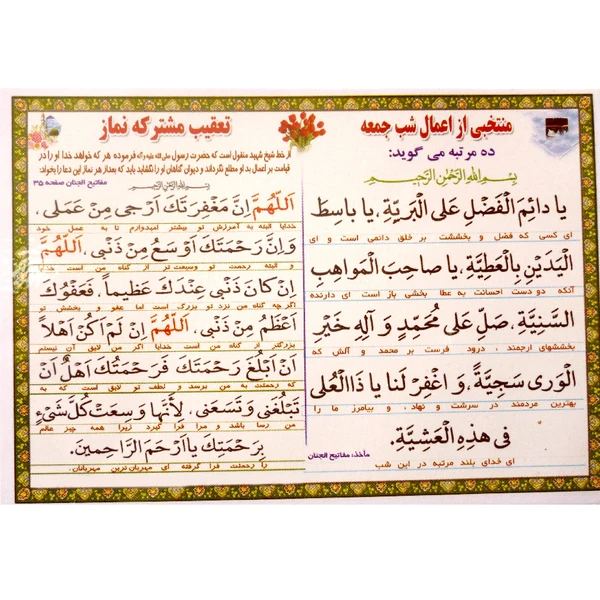 منتخبی از اعمال شب جمعه
ده مرتبه می گوید:
بِسْمِ اللهِ الرَّحْمٰنِ الرَّحیمِ
یا دائِمَ الْفَضْلِ عَلَی الْبَرِیَّةِ، یا باسِطَ
ای کسی که فضل و بخششت بر خلق دائمی است و ای
الْیَدَیْنِ بِالْعَطِیَّةِ، یا صاحِبَ الْمَواهِبِ
آنکه دو دست احسانت به عطا بخشی باز است ای دارنده
السَّنِیَّةِ، صَلِّ عَلی مُحَمَّدٍ وَ آلِهِ خَیْرِ
بخششهای ارجمند، درود فرست بر محمد و آلش که
الْوَری سَجِیَّةً، وَ اغْفِرْ لَنا یا ذَاالْعُلی
بهترین مردمند در سرشت و نهاد، و بیامرز ما را
فی هذِهِ الْعَشِیَّةِ.
ای خدای بلند مرتبه در این شب
مأخذ: مفاتیح الجنان
تعقیب مشترکه نماز
از خط شیخ شهید منقول است که حضرت رسول صلی الله علیه و آله فرموده هر که خواهد خدا او را در
قیامت بر اعمال بد او مطلع نگرداند و دیوان گناهان او را نگشاید باید که بعد از هر نماز این دعا را بخواند:
مفاتیح الجنان صفحه ۳۵
بِسْمِ اللهِ الرَّحْمٰنِ الرَّحیمِ
اَللّهُمَّ اِنَّ مَغْفِرَتَكَ اَرْجی مِنْ عَمَلی،
خدایا البته به آمرزش تو بیشتر امیدوارم تا به عمل خود
وَ اِنَّ رَحْمَتَكَ اَوْسَعُ مِنْ ذَنْبی، اَللّهُمَّ
و البته رحمت تو وسیعت تر از گناه من است خدایا
اِنْ کانَ ذَنْبی عِنْدَكَ عَظیماً، فَعَفْوُكَ
اگر چه گناه من نزد تو بزرگ است اما عفو و بخشش تو
اَعْظَمُ مِنْ ذَنْبی، اَللّهُمَّ اِنْ لَمْ اَکُنْ اَهْلاً
بزرگتر از گناه من است خدایا اگر من لایق آن نیستم
اَنْ اَبْلُغَ رَحْمَتَكَ فَرَحْمَتُكَ اَهْلٌ اَنْ
که رحمتت به من برسد و لطف تو لایق است که به
تَبْلُغَنی وَ تَسَعَنی، لِاَنَّها وَسِعَتْ کُلَّ شَیْءٍ
من رسا باشد و مرا فرا گیرد زیرا همه چیز عالم
بِرَحْمَتِكَ یا اَرْحَمَ الرّاحِمینَ.
را رحمتت فرا گرفته ای مهربان ترین مهربانان.